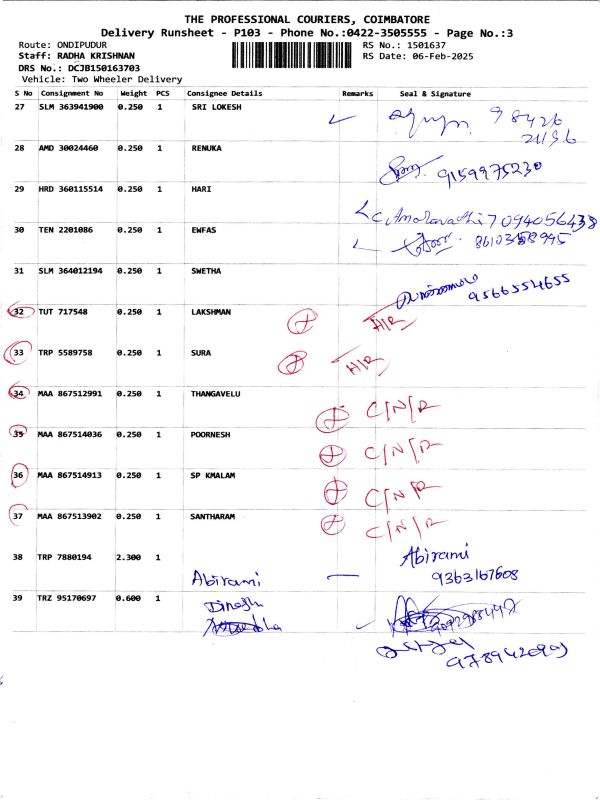 THE PROFESSIONAL COURIERS, COIMBATORE
Delivery Runsheet - P103 - Phone No.:0422-3505555 - Page No.:3
Route: ONDIPUDUR RS No.: 1501637
Staff: RADHA KRISHNAN RS Date: 06-Feb-2025
DRS No.: DCJB150163703
Vehicle: Two Wheeler Delivery
S No Consignment No Weight PCS Consignee Details Remarks Seal & Signature
27 SLM 363941900 0.250 1 SRI LOKESH 98426
28 AMD 30024460 0.250 1 RENUKA 9159975230
29 HRD 360115514 0.250 1 HARI
C. Amaravathi 7094056438
30 TEN 2201086 0.250 1 EWFAS
31 SLM 364012194 0.250 1 SWETHA 9566554655
32 TUT 717548 0.250 1 LAKSHMAN H/R
33 TRP 5589758 0.250 1 SURA H/R
34 MAA 867512991 0.250 1 THANGAVELU C/N/R
35 MAA 867514036 0.250 1 POORNESH C/N/R
36 MAA 867514913 0.250 1 SP KMALAM C/N/R
37 MAA 867513902 0.250 1 SANTHARAM C/N/R
38 TRP 7880194 2.300 1 Abirami
Abirami 9363167608
39 TRZ 95170697 0.600 1 Dinesh